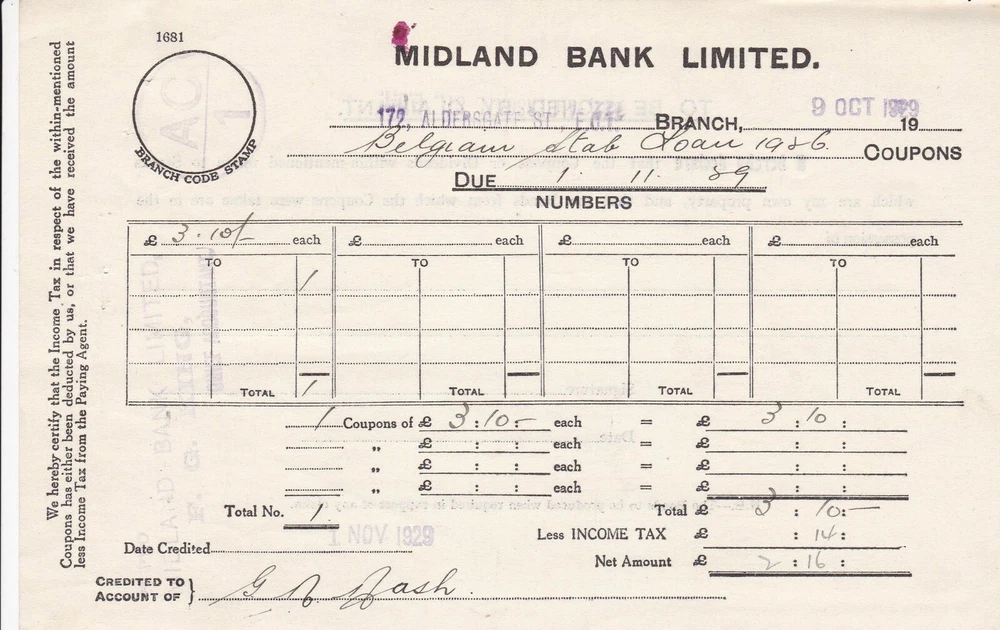 1681
BRANCH CODE STAMP
MIDLAND BANK LIMITED.
172, ALDERSGATE ST., E.C.1 BRANCH, 9 OCT 1929 19
Belgian Stab Loan 1926. COUPONS
DUE 1. 11. 29
NUMBERS
£ 3.10/- each £ each £ each £ each
TO TO TO TO
1
TOTAL 1 TOTAL TOTAL TOTAL
1 Coupons of £ 3 : 10 : - each = £ 3 : 10 :
„ £ : : each = £ : :
„ £ : : each = £ : :
„ £ : : each = £ : :
Total No. 1 Total £ 3 : 10 : -
1 NOV 1929 Less INCOME TAX £ : 14 :
Date Credited Net Amount £ 2 : 16 :
CREDITED TO
ACCOUNT OF } G N Nash.
We hereby certify that the Income Tax in respect of the within-mentioned
Coupons has either been deducted by us, or that we have received the amount
less Income Tax from the Paying Agent.